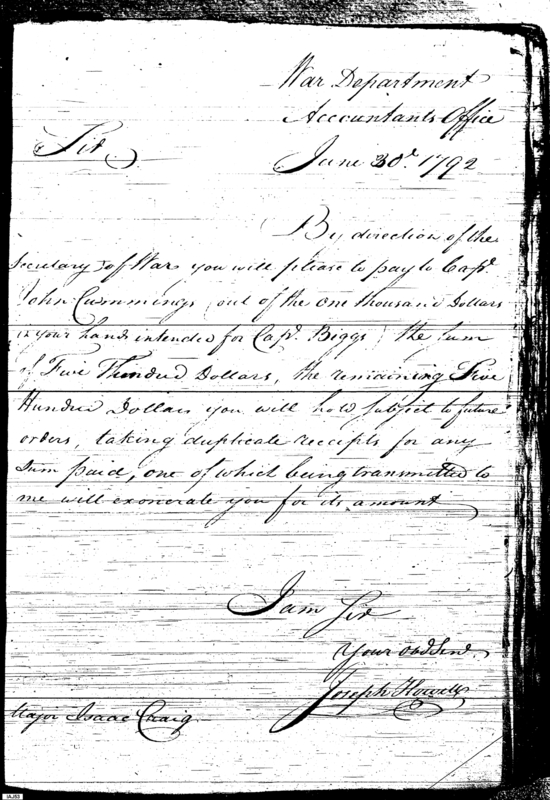 War Department
Accountants Office
Sir
June 30th 1792
By direction of the
Secretary of War you will please to pay to Capt.
John Cummings (out of the one thousand Dollars
in your hands intended for Capt. Biggs) the sum
of Five Hundred Dollars, the remaining Five
Hundred Dollars you will hold subject to future
orders, taking duplicate receipts for any
Sum paid, one of which being transmitted to
me will exonerate you for its amount
I am Sir
Your Obd Serv.
Joseph Howell
Major Isaac Craig
IAJ53